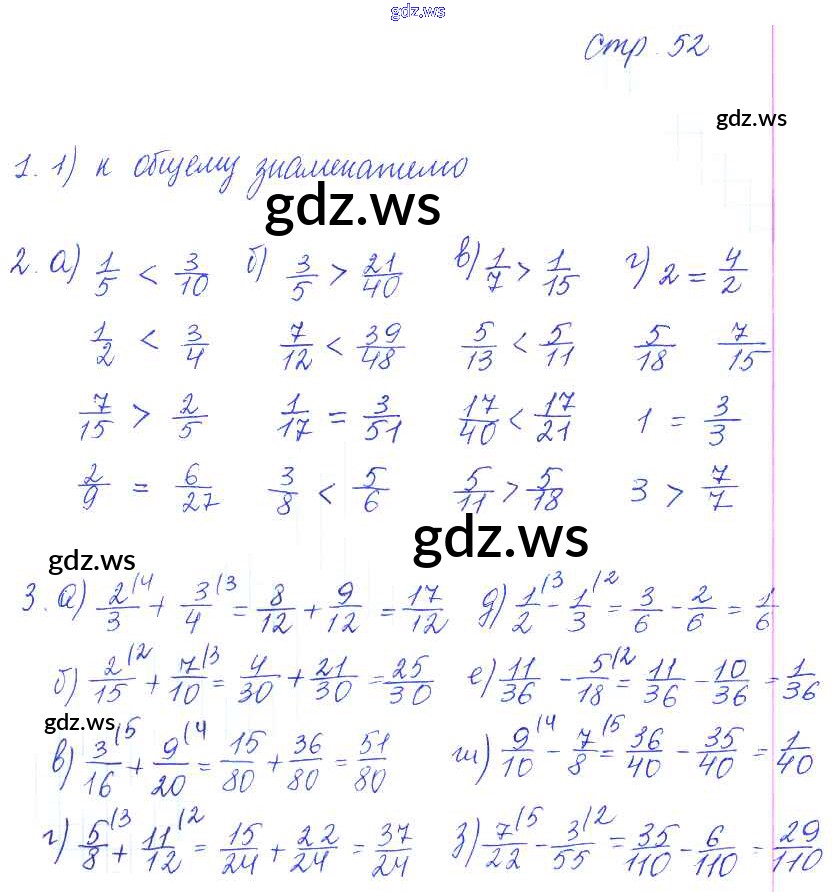 gdz.ws
стр. 52
gdz.ws
1. 1) к общему знаменателю
gdz.ws
2. а) 1/5 < 3/10 б) 3/5 > 21/40 в) 1/7 > 1/15 г) 2 = 4/2
1/2 < 3/4 7/12 < 39/48 5/13 < 5/11 5/18 7/15
7/15 > 2/5 1/17 = 3/51 17/40 < 17/21 1 = 3/3
2/9 = 6/27 3/8 < 5/6 5/11 > 5/18 3 > 7/7
gdz.ws
gdz.ws
3. а) 2/3 (4 + 3/4 (3 = 8/12 + 9/12 = 17/12 д) 1/2 (3 - 1/3 (2 = 3/6 - 2/6 = 1/6
б) 2/15 (2 + 7/10 (3 = 4/30 + 21/30 = 25/30 е) 11/36 - 5/18 (2 = 11/36 - 10/36 = 1/36
gdz.ws
в) 3/16 (5 + 9/20 (4 = 15/80 + 36/80 = 51/80 ж) 9/10 (4 - 7/8 (5 = 36/40 - 35/40 = 1/40
г) 5/8 (3 + 11/12 (2 = 15/24 + 22/24 = 37/24 з) 7/22 (5 - 3/55 (2 = 35/110 - 6/110 = 29/110